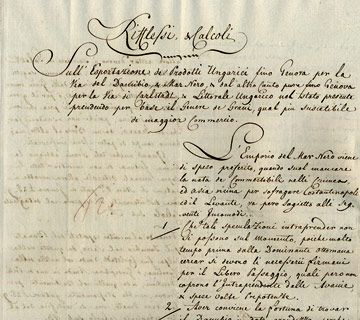 Riflessi, e Calcoli
Sull' Esportazione de Prodotti Ungarici fino Genova per la
Via del Danubio, e Mar Nero, e dal altro Canto pure fino Genova
per la Via di Carlstadt, e Littorale Ungarico nel Stato presente
prendendo per Base il Genere de Grani, qual più Suscettibile
di maggior Commercio.
L'Emporio del Mar Nero viene
di spesso preferito, quando suol mancare
la nata e Commestibile nelle Crimea
ed Asia vicina per suffragar Costantinopoli
ed il Levante, va pero Sogetta alle Se
guenti Incomodi.
1 Che tali Speculazioni intraprender non
Si possono sul Momento, poiche molto
tempo prima dalla Dominante Ottomana
cercar si devono li necessarii Firmani
per il Libero Passaggio, quali pero non
coprono l'Intraprendente dalle Avanie
e Spese
2 Aver conviene la Fortuna di trovar
il Danubio in